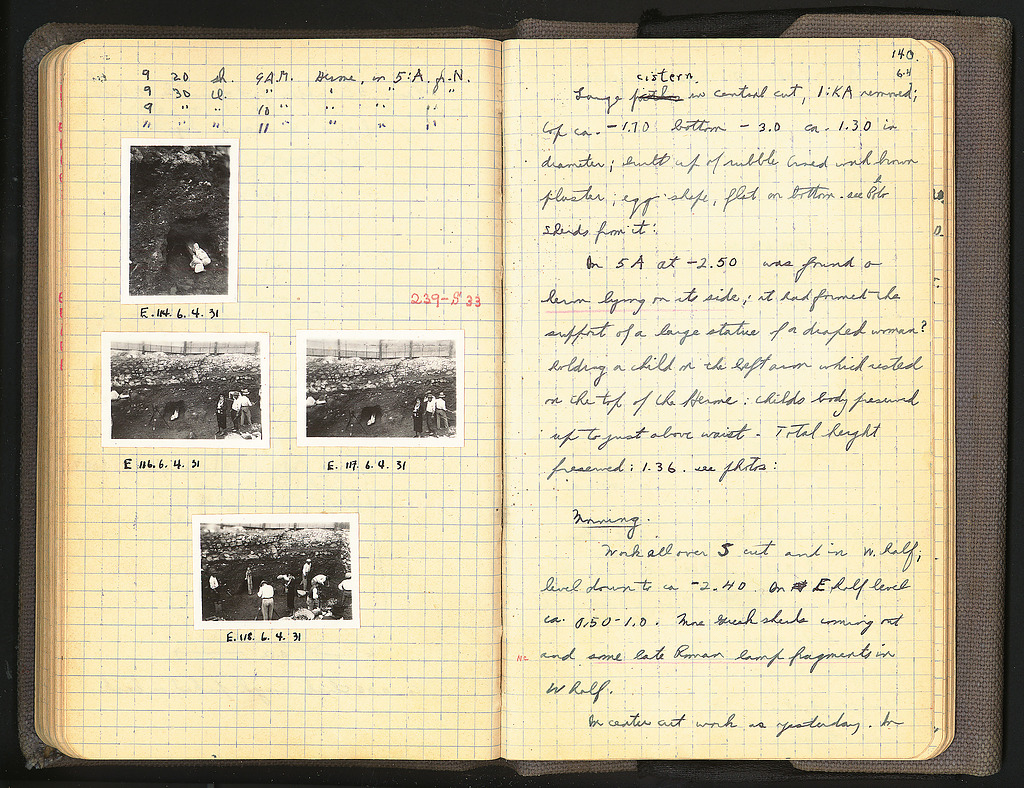 9 20 sh. 9 A.M. Herme, in 5:A, fr. N.
9 30 cl. " " " "
9 " " 10 " " " "
" " " 11 " " " "
E. 114. 6. 4. 31
239-S 33
E 116. 6. 4. 31
E. 117. 6. 4. 31
E. 118. 6. 4. 31
140.
6.4
cistern.
Large in central cut, 1:KA removed;
top ca. -1.70 bottom -3.0 ca. 1.30 in
diameter; built up of rubble lined with brown
plaster; egg shape, flat on bottom. see Photo
sherds from it:
In 5 A at -2.50 was found a
herm lying on its side; it had formed the
support of a large statue of a draped woman?
holding a child on the left arm which rested
on the top of the Herme: childs body preserved
up to just above waist. Total height
preserved: 1.36. see photos:
Morning.
Work all over S cut and in W. half;
level down to ca -2.40 In E half level
ca. 0.50-1.0. More Greek sherds coming out
and some late Roman lamp fragments in
W half.
In center cut work as yesterday. In